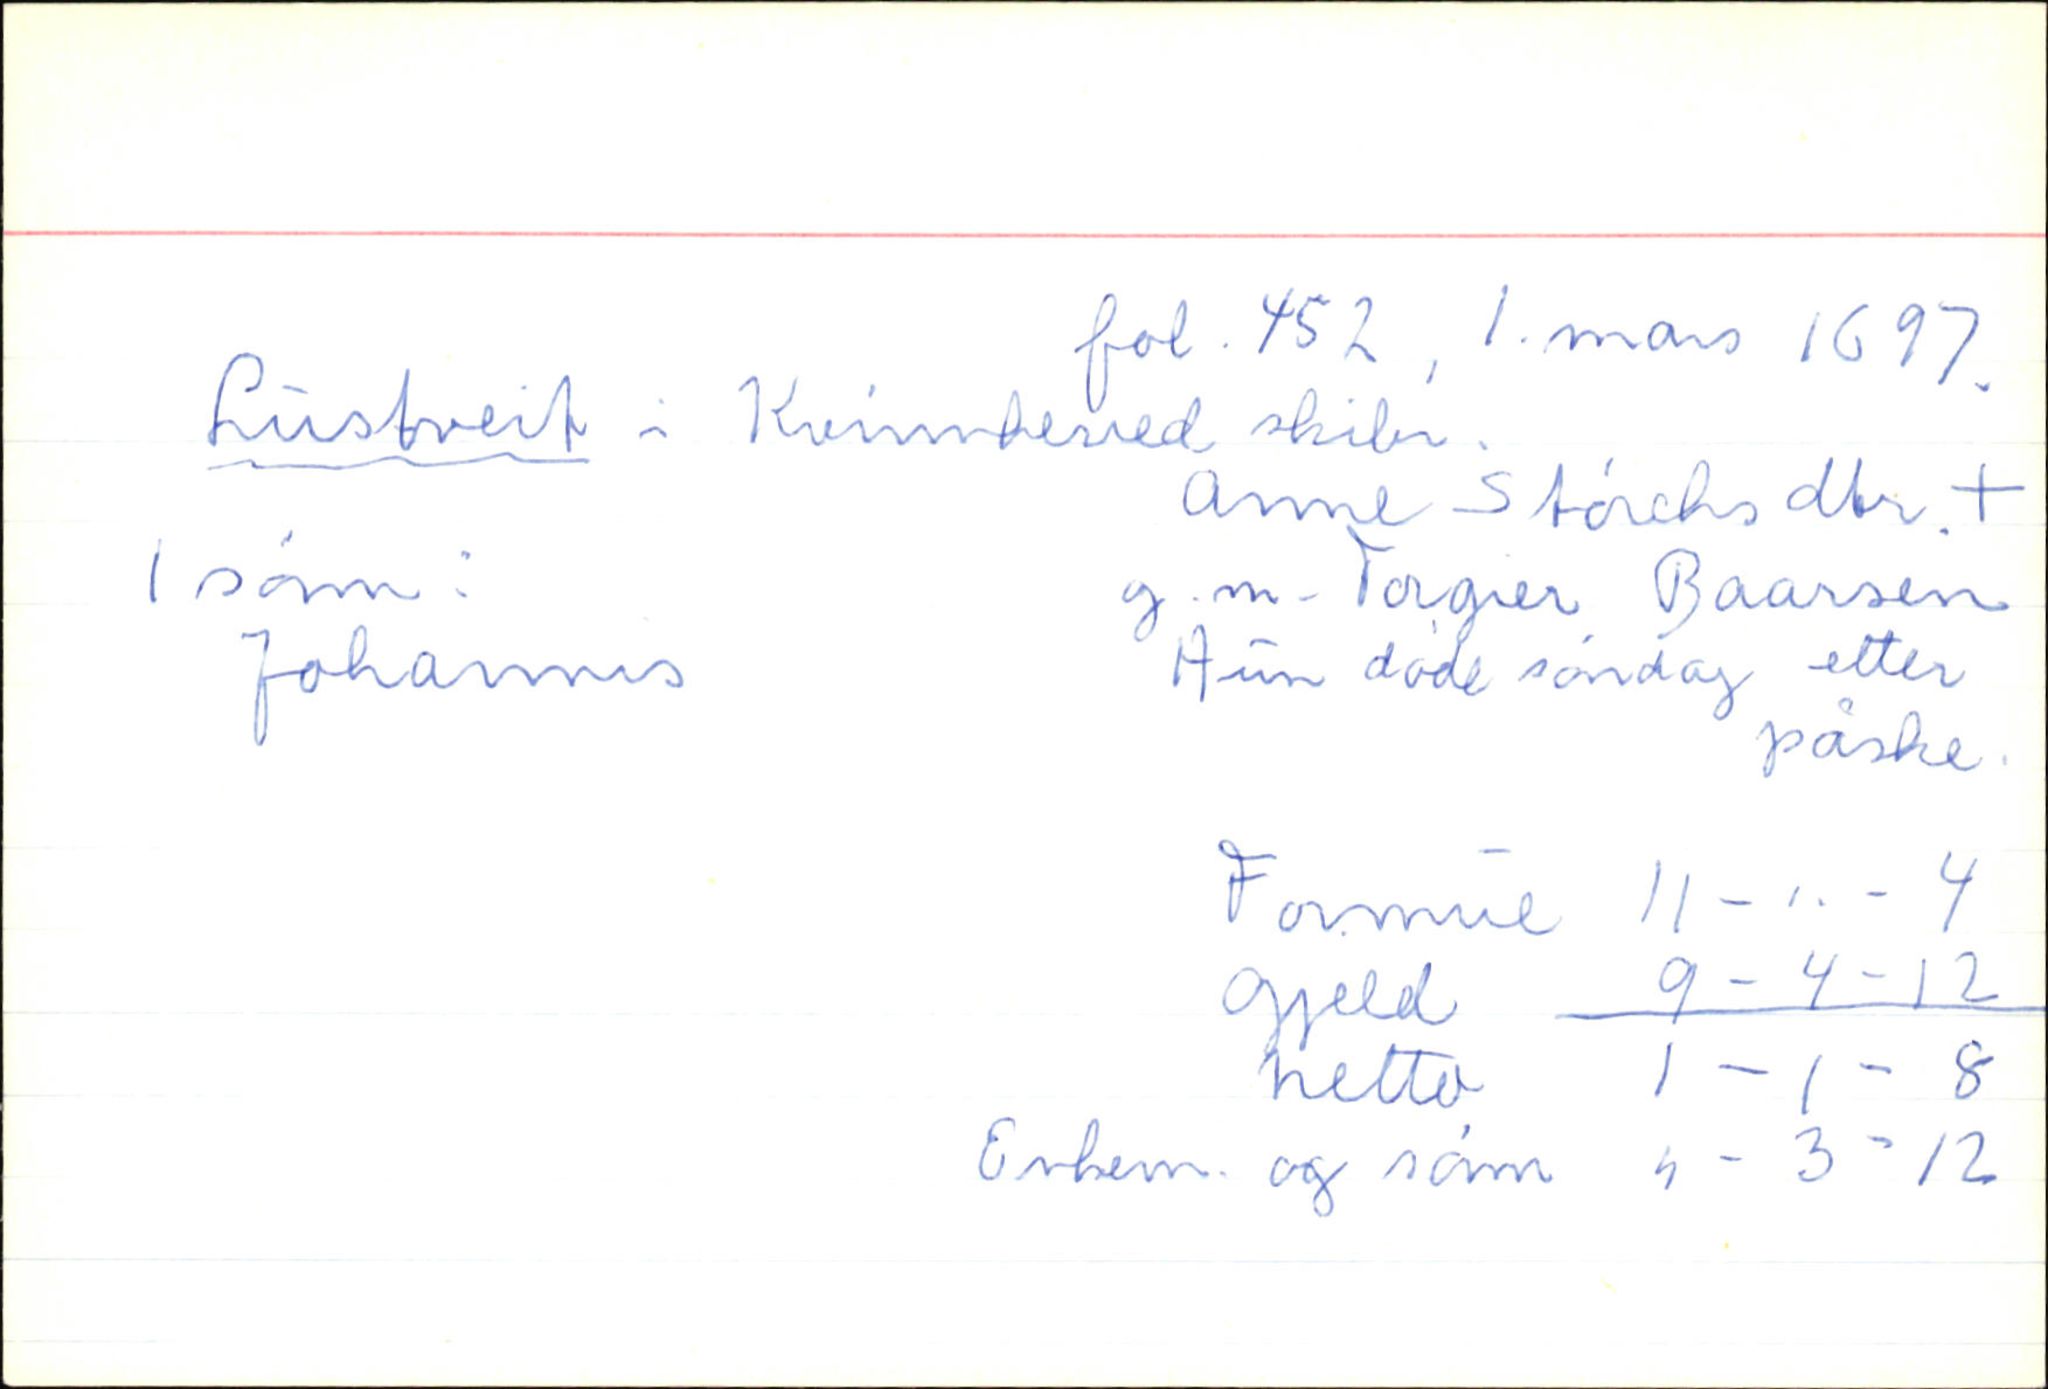 fol. 452, 1. mars 1697.
Lustveit i Kvinnherred skibr.
Anne Størchs dtr. +
1 sønn:
g.m. Torgier Baarsen
Johannis
Hun døde søndag etter
påske.
Formue 11 - " - 4
Gjeld 9 - 4 - 12
netto 1 - 1 - 8
Enkem. og sønn " - 3 - 12